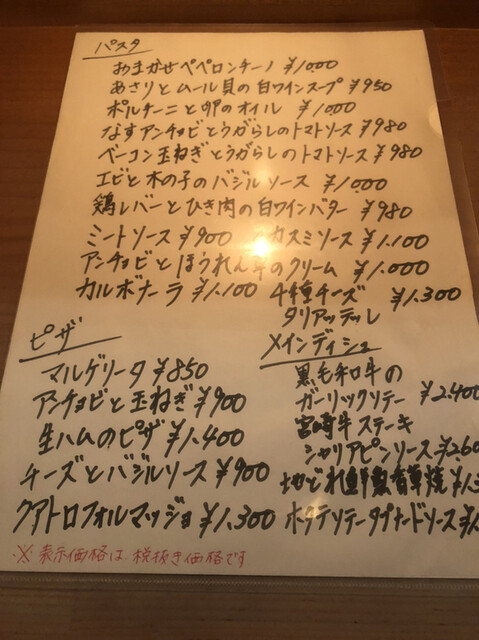 パスタ
おまかせペペロンチーノ ¥1.000
あさりとムール貝の白ワインスープ ¥950
ポルチーニと卵のオイル ¥1.000
なすアンチョビとうがらしのトマトソース ¥980
ベーコン玉ねぎとうがらしのトマトソース ¥980
エビと木の子のバジルソース ¥1.000
鶏レバーとひき肉の白ワインバター ¥980
ミートソース ¥900 カスミソース ¥1.100
アンチョビとほうれん草のクリーム ¥1.000
カルボナーラ ¥1.100 4種チーズ ¥1.300
タリアッテッレ
ピザ
マルゲリータ ¥850
アンチョビと玉ねぎ ¥900
生ハムのピザ ¥1.400
チーズとバジルソース ¥900
クアトロフォルマッジョ ¥1.300
メインディシュ
黒毛和牛の
ガーリックソテー ¥2.400
宮崎牛ステーキ
シャリアピンソース ¥260
地どれ鮮魚香草焼 ¥1.3
ホタテソテータプナードソース ¥1.
※表示価格は税抜き価格です